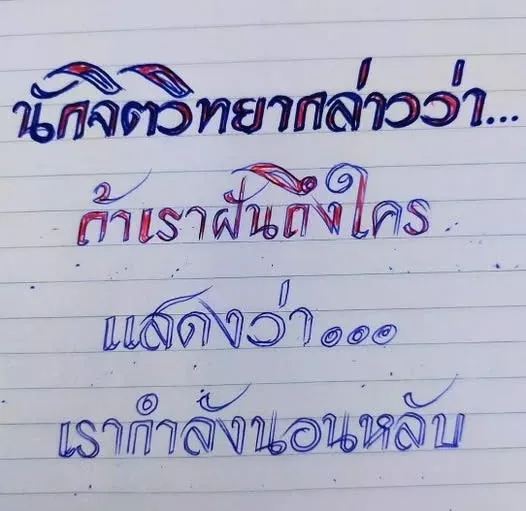 นักจิตวิทยากล่าวว่า...
ถ้าเราฝันถึงใคร
แสดงว่า...
เรากำลังนอนหลับ